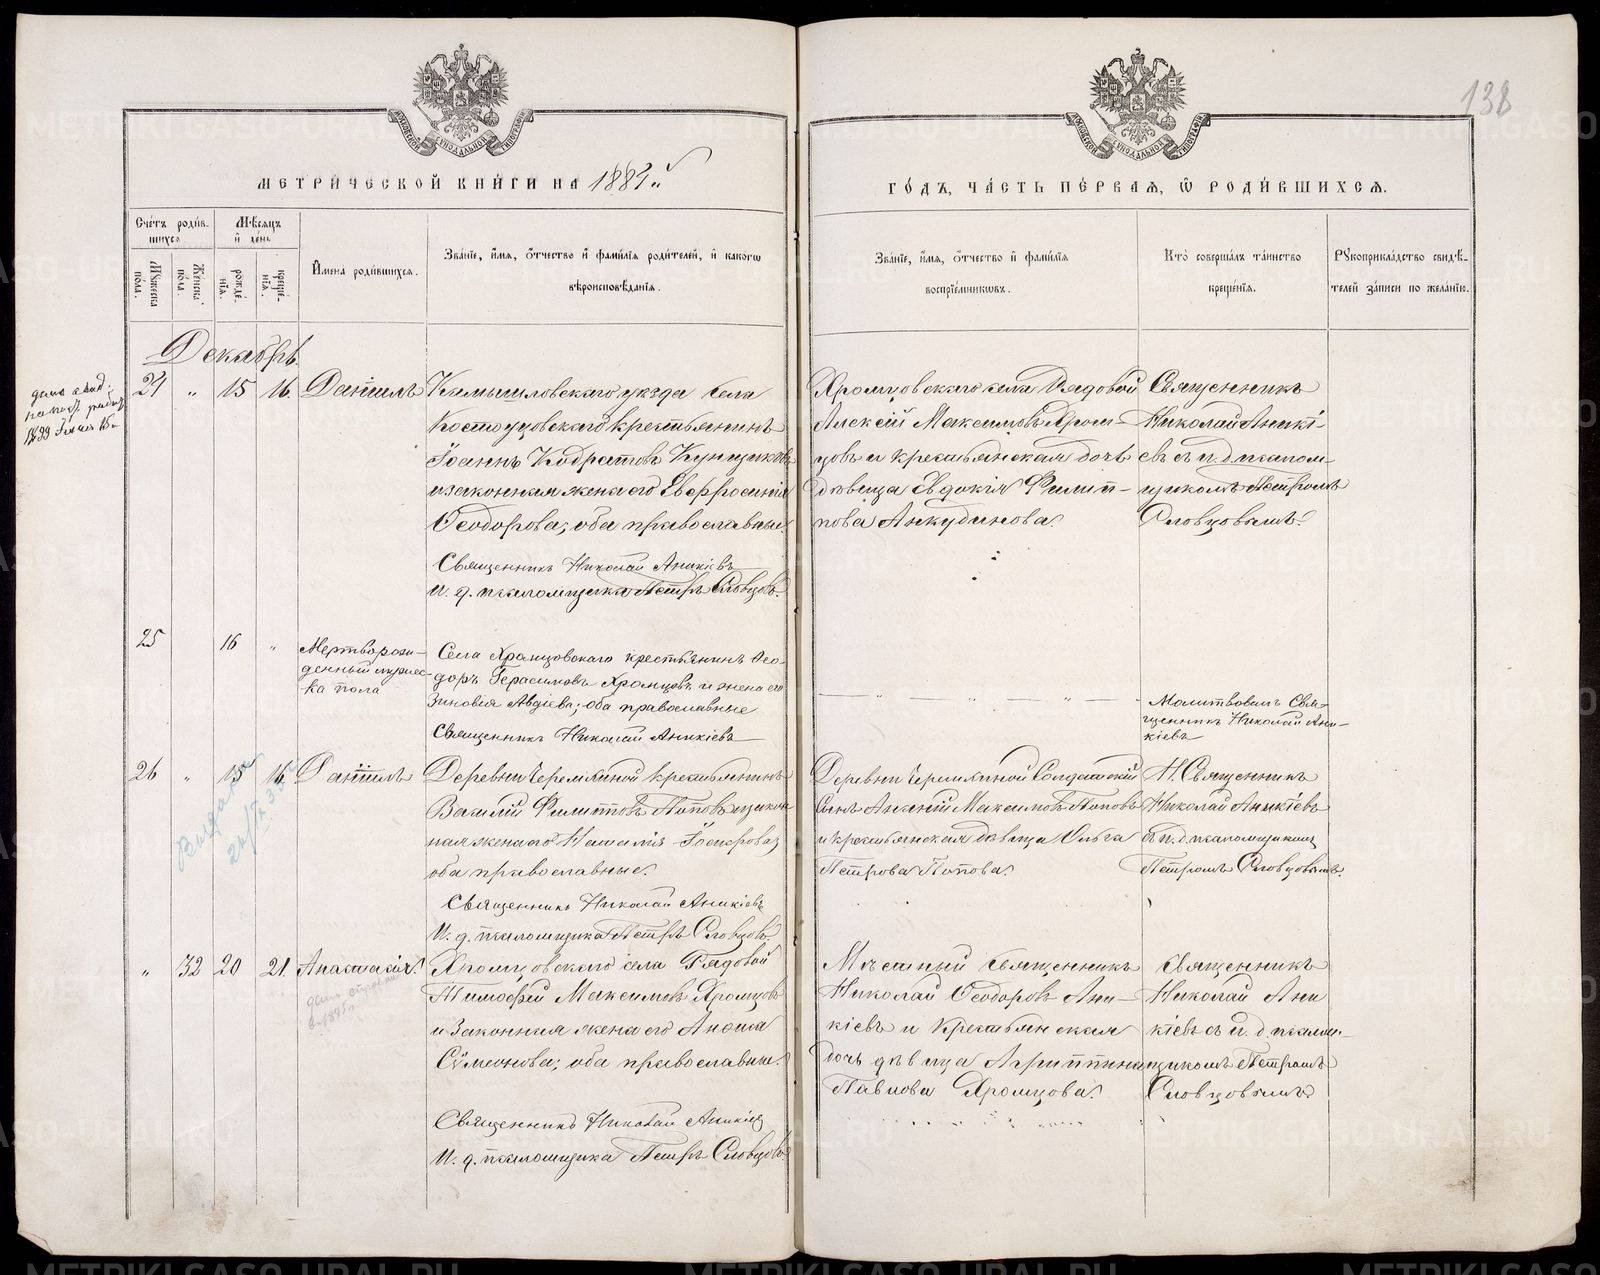 138
МЕТРИЧЕСКОЙ КНИГИ НА 188
ГОДЪ, ЧАСТЬ ПЕРВАЯ, Ѿ РОДИВШИХСЯ.
Счетъ родив-
шихся
Мѣсяцъ
и день
Мужеска пола.
Женска пола.
рожденія.
крещенія.
Имена родившихся.
Званіе, имя, отчество и фамилія родителей, и какого
вѣроисповѣданія.
Званіе, имя, отчество и фамилія
воспріемниковъ.
Кто совершалъ таинство
крещенія.
Рукоприкладство свидѣ-
телей записи по желанію.
Декабрь
24 " 15 16. Даніилъ
Камышловскаго уѣзда села
крестьянинъ
Іоаннъ
и законная жена его Евфросинія
Ѳеодорова; оба православные.
Священникъ Николай Аникіевъ
И. д. псаломщика Петръ Словцовъ
Хромцовскаго села Рядовой
Алексѣй Максимовъ Хром-
цовъ и крестьянская дочь
дѣвица Евдокія Филип-
пова Анкудинова.
Священникъ
Николай Аникі-
евъ съ и. д. псалом-
щикомъ Петромъ
Словцовымъ.
25 16 " Мертворож-
денный мужес-
ка пола
Села Хромцовскаго крестьянинъ Ѳео-
доръ Герасимовъ Хромцовъ и жена его
Зиновія Авдіева; оба православные
Священникъ Николай Аникіевъ
Молитвовалъ Свя-
щенникъ Николай Ани-
кіевъ
26 " 15 16. Даніилъ
Деревни крестьянинъ
Василій Филипповъ Поповъ и закон-
ная жена его
оба православные.
Священникъ Николай Аникіевъ
И. д. псаломщика Петръ Словцовъ
Деревни Солдатскій
Сынъ Максимовъ Поповъ
и крестьянская дѣвица Ольга
Петрова Попова.
Священникъ
Николай Аникіевъ
съ и. д. псаломщикомъ
Петромъ Словцовымъ.
" 32 20 21. Анастасія.
Хромцовскаго села Рядовой
Тимофей Максимовъ Хромцовъ
и законная жена его
Сумеонова; оба православные.
Священникъ Николай Аникіевъ
И. д. псаломщика Петръ Словцовъ
Мѣстный Священникъ
Николай Ѳеодоровъ Ани-
кіевъ и Крестьянская
дочь дѣвица Агриппина
Павлова Хромцова.
Священникъ
Николай Ани
кіевъ съ и. д. псалом-
щикомъ Петромъ
Словцовымъ